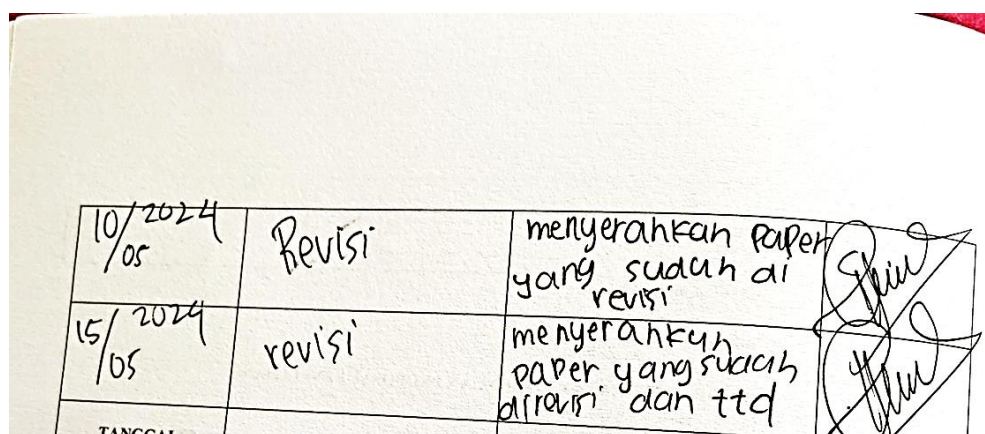 10/05 2024
Revisi
menyerahkan paper
yang sudah di
revisi
15/05 2024
revisi
menyerahkan
paper yang sudah
direvisi dan ttd
TANGGAL